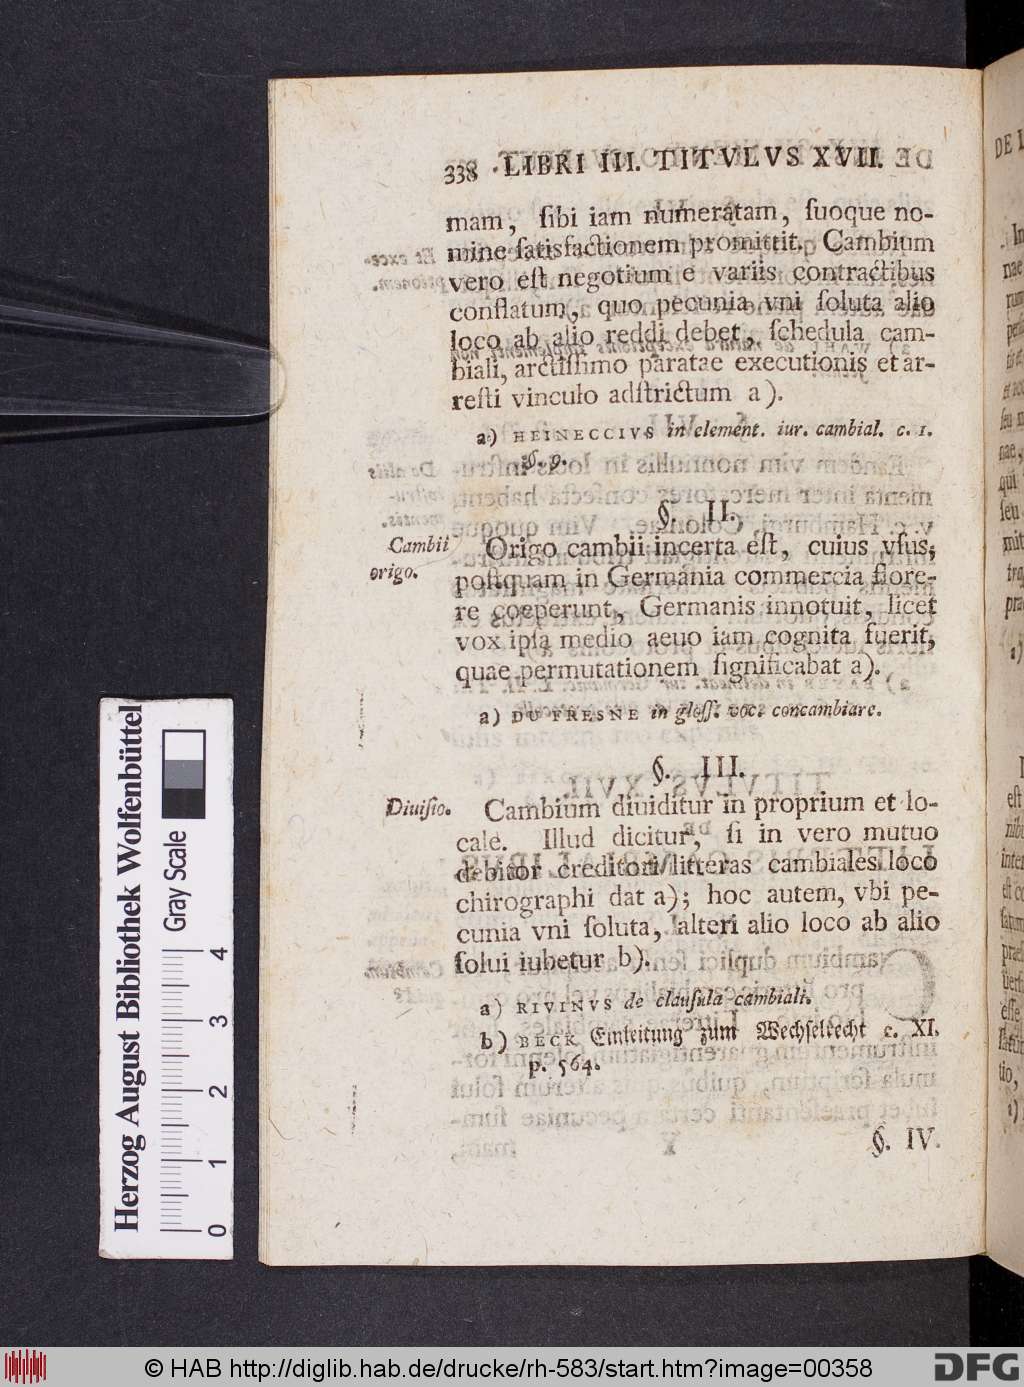 338 LIBRI III. TITVLVS XVII.
mam, ſibi iam numeratam, ſuoque no-
mine ſatisfactionem promittit. Cambium
vero eſt negotium e variis contractibus
conflatum, quo pecunia vni ſoluta alio
loco ab alio reddi debet, ſchedula cam-
biali, arctiſſimo paratae executionis et ar-
reſti vinculo adſtrictum a).
a) HEINECCIVS in element. iur. cambial. c. 1.
§. 9.
§. II.
Cambii
origo.
Origo cambii incerta eſt, cuius vſus,
poſtquam in Germania commercia flore-
re coeperunt, Germanis innotuit, licet
vox ipſa medio aeuo iam cognita fuerit,
quae permutationem ſignificabat a).
a) DU FRESNE in gloſſ. voc. concambiare.
§. III.
Diuiſio.
Cambium diuiditur in proprium et lo-
cale. Illud dicitur, ſi in vero mutuo
debitor creditori litteras cambiales loco
chirographi dat a); hoc autem, vbi pe-
cunia vni ſoluta, alteri alio loco ab alio
ſolui iubetur b).
a) RIVINVS de clauſula cambiali.
b) BECK Einleitung zum Wechſelrecht c. XI.
p. 564.
§. IV.
Herzog August Bibliothek Wolfenbüttel
Gray Scale
0 1 2 3 4
© HAB http://diglib.hab.de/drucke/rh-583/start.htm?image=00358
DFG